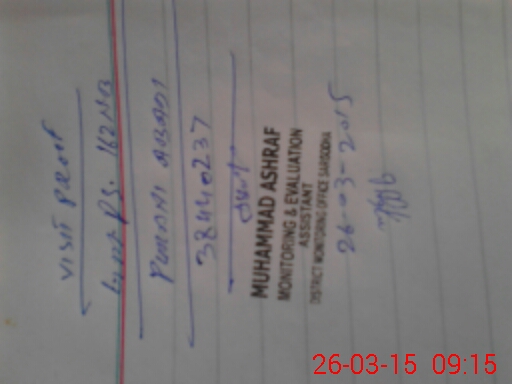 VISIT PROOF
PS. 162 NB
PURANI ABADI
38440237
MUHAMMAD ASHRAF
MONITORING & EVALUATION
ASSISTANT
DISTRICT MONITORING OFFICE SARGODHA
26-03-2015
26-03-15 09:15